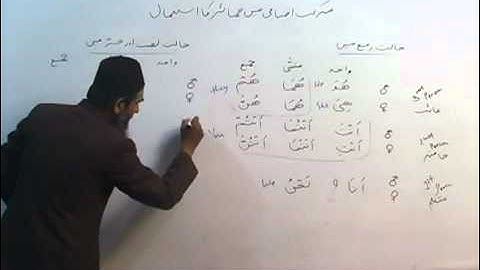 مرکب اضافی میں ضمائر کا استعمال
حالت رفع میں
حالت نصب اور جر میں
واحد مثنی جمع
واحد جمع
♂ هُوَ هُمَا هُمْ
♀ هِيَ هُمَا هُنَّ
3rd Person
غائب
♂ أَنْتَ أَنْتُمَا أَنْتُمْ
♀ أَنْتِ أَنْتُمَا أَنْتُنَّ
2nd Person
حاضر
♂ أَنَا و نَحْنُ
♀
1st Person
متکلم
♂
♀